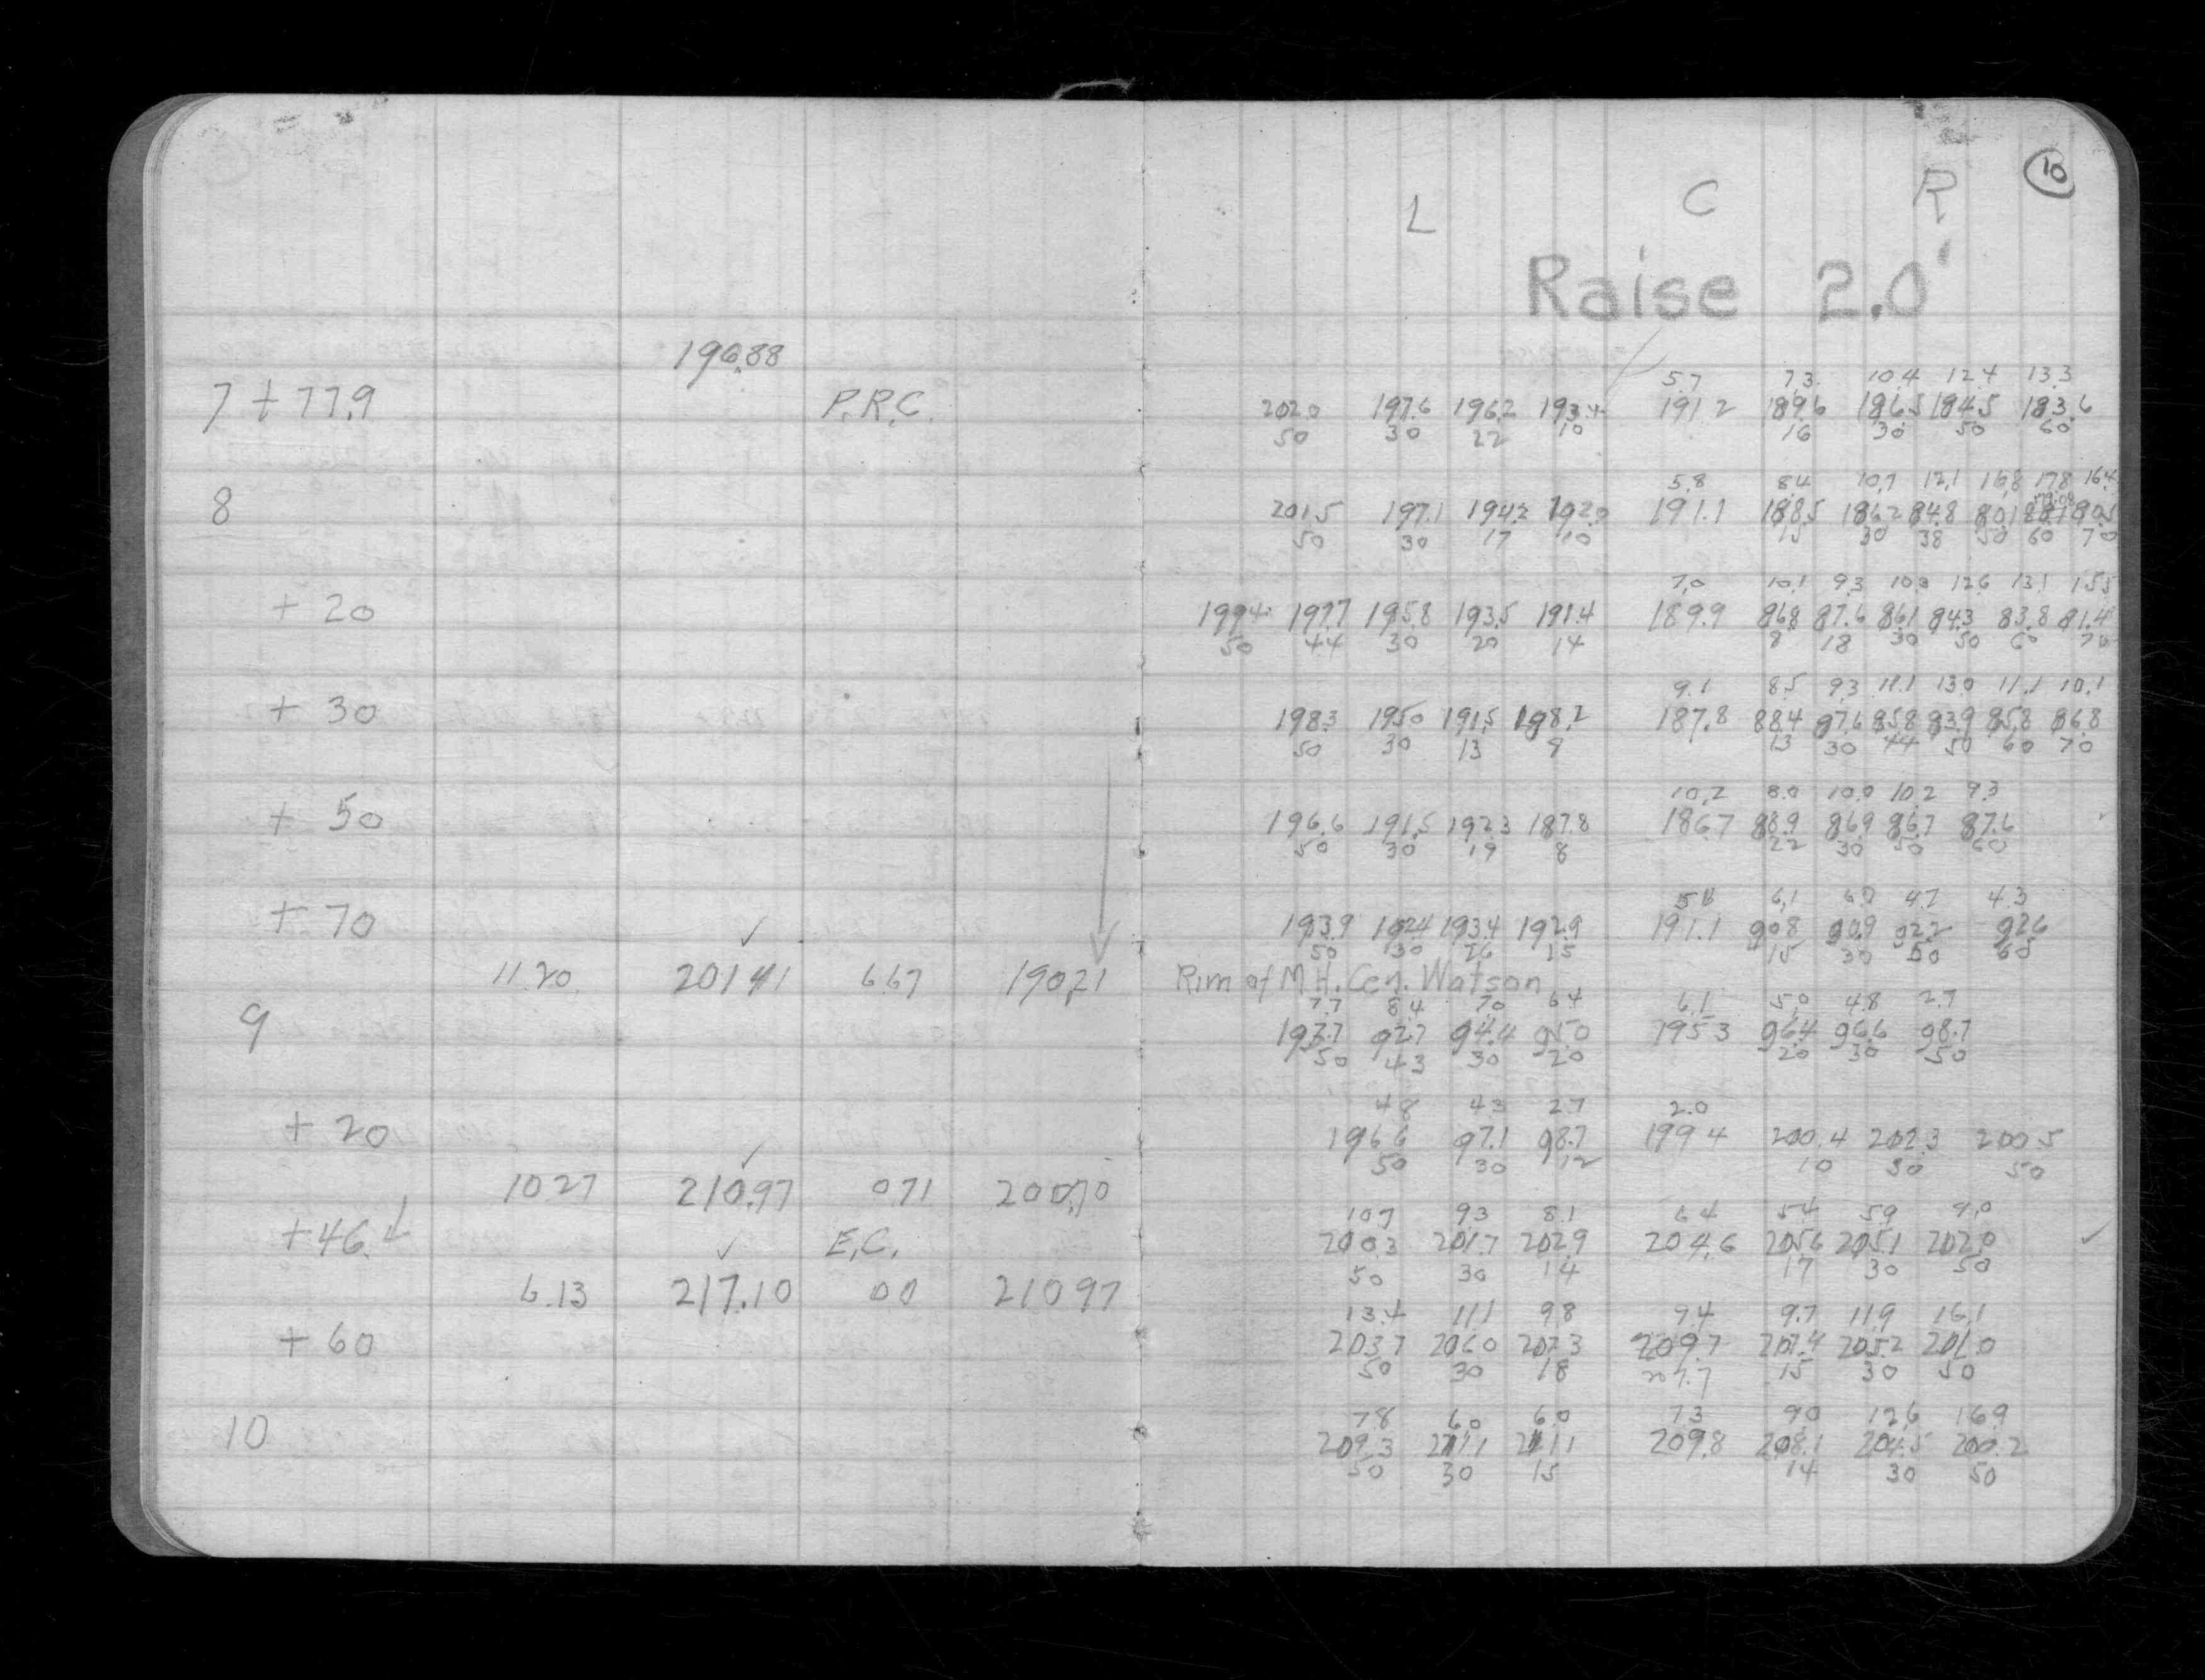 10
L C R
Raise 2.0'
196.88
5.7 7.3 10.4 12.4 13.3
7 + 77.9 P.R.C. 202.0 197.6 196.2 193.4 191.2 189.6 186.5 184.5 183.6
50 30 22 10 16 30 50 60
5.8 8.4 10.7 12.1 16.8 17.8 16.4
8 201.5 197.1 194.2 192.0 191.1 188.5 186.2 84.8 80.1 80.5
50 30 17 10 15 30 38 50 60 70
7.0 10.1 9.3 10.8 12.6 13.1 15.5
+ 20 199.4 197.7 195.8 193.5 191.4 189.9 86.8 87.6 86.1 84.3 83.8 81.4
50 44 30 20 14 8 18 30 50 60 70
9.1 8.5 9.3 11.1 13.0 11.1 10.1
+ 30 198.3 195.0 191.5 198.2 187.8 88.4 87.6 85.8 83.9 85.8 86.8
50 30 13 9 13 30 44 50 60 70
10.2 8.0 10.0 10.2 9.3
+ 50 196.6 191.5 192.3 187.8 186.7 88.9 86.9 86.7 87.6
50 30 19 8 22 30 50 60
5.8 6.1 6.0 4.7 4.3
+ 70 193.9 192.4 193.4 192.9 191.1 90.8 90.9 92.2 92.6
50 30 26 15 15 30 50 60
11.20 201.41 6.67 190.21 Rim of M.H. Cen. Watson
7.7 8.4 7.0 6.4 6.1 5.0 4.8 2.7
9 193.7 92.7 94.4 95.0 195.3 96.4 96.6 98.7
50 43 30 20 20 30 50
4.8 4.3 2.7 2.0
+ 20 196.6 97.1 98.7 199.4 200.4 202.3 200.5
50 30 12 10 30 50
10.27 210.97 0.71 200.70
10.7 9.3 8.1 6.4 5.4 5.9 9.0
+46. E.C. 200.3 201.7 202.9 204.6 205.6 205.1 202.0
50 30 14 17 30 50
6.13 217.10 00 210.97
13.4 11.1 9.8 7.4 9.7 11.9 16.1
+ 60 203.7 206.0 207.3 209.7 207.4 205.2 201.0
50 30 18 209.7 15 30 50
7.8 6.0 6.0 7.3 9.0 12.6 16.9
10 209.3 211.1 211.1 209.8 208.1 204.5 200.2
50 30 15 14 30 50